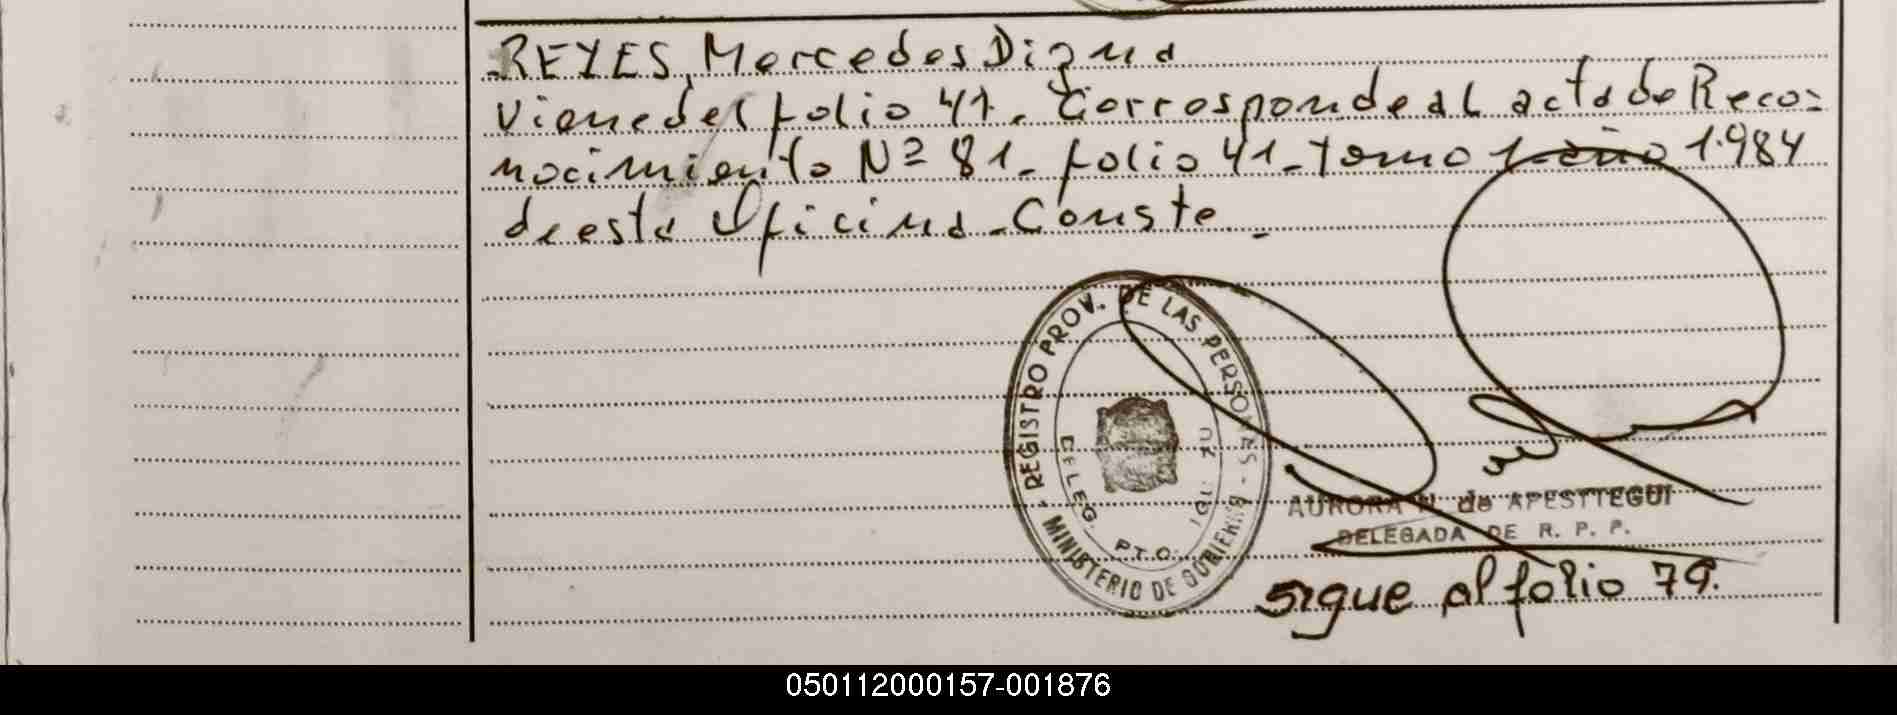 REYES, Mercedes Digna
viene del folio 41. Corresponde al acta de Reco=
nocimiento Nº 81- folio 41- tomo 1- año 1.984
de esta Oficina. Conste.-
REGISTRO PROV. DE LAS PERSONAS - MINISTERIO DE GOBIERNO
DELEG. PTO.
AURORA N. de APESTTEGUI
DELEGADA DE R. P. P.
sigue al folio 79.
050112000157-001876